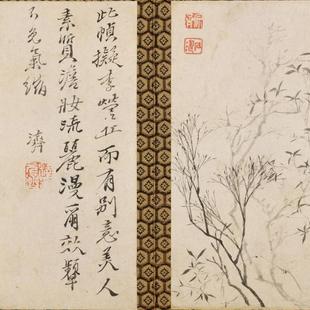 此幀擬李營丘而有別意美人
素質澹妝流麗漫爾效顰
不免氣緇
濟